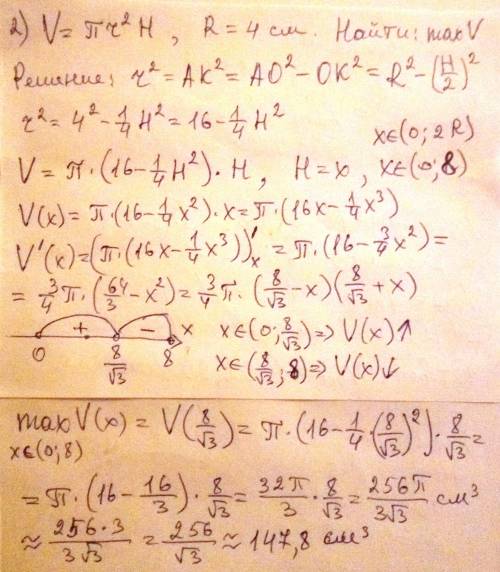 2) V = πr²H , R = 4 см. Найти: max V
Решение: r² = AK² = AO² - OK² = R² - (H/2)²
r² = 4² - 1/4 H² = 16 - 1/4 H²
x∈(0; 2R)
V = π·(16 - 1/4 H²)·H , H = x , x∈(0; 8)
V(x) = π·(16 - 1/4 x²)·x = π·(16x - 1/4 x³)
V'(x) = (π·(16x - 1/4 x³))'ₓ = π·(16 - 3/4 x²) =
= 3/4 π·(64/3 - x²) = 3/4 π·(8/√3 - x)(8/√3 + x)
+ - x x∈(0; 8/√3) => V(x)↑
0 8/√3 8 x∈(8/√3; 8) => V(x)↓
max V(x) = V(8/√3) = π·(16 - 1/4·(8/√3)²)·8/√3 =
x∈(0; 8)
= π·(16 - 16/3)·8/√3 = 32π/3 · 8/√3 = 256π/3√3 см³
≈ 256·3/3√3 = 256/√3 ≈ 147,8 см³